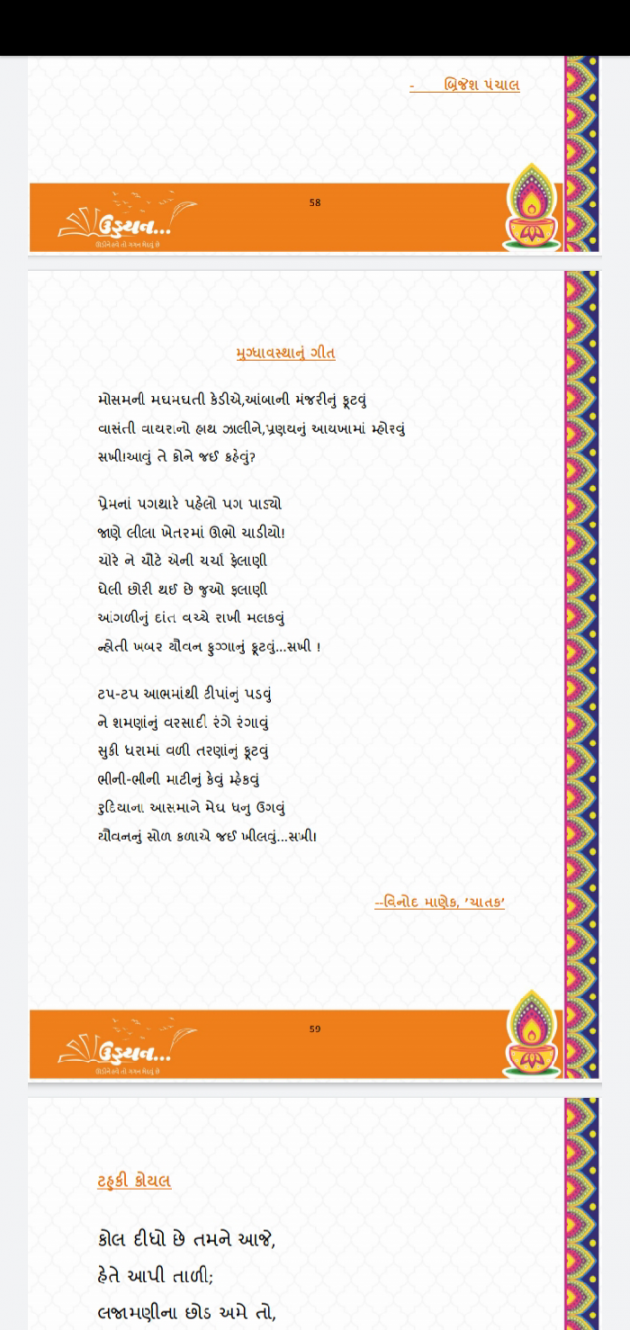 - બ્રિજેશ પંચાલ
58
ઉડ્ડયન...
મુગ્ધાવસ્થાનું ગીત
મોસમની મઘમઘતી કેડીએ,આંબાની મંજરીનું ફૂટવું
વાસંતી વાયરાનો હાથ ઝાલીને,પ્રણયનું આયખામાં મ્હોરવું
સખી!આવું તે કોને જઈ કહેવું?
પ્રેમનાં પગથારે પહેલો પગ પાડ્યો
જાણે લીલા ખેતરમાં ઊભો ચાડીયો!
ચોરે ને ચૌટે એની ચર્ચા ફેલાણી
ઘેલી છોરી થઈ છે જુઓ ફલાણી
આંગળીનું દાંત વચ્ચે રાખી મલકવું
ન્હોતી ખબર યૌવન ફુગ્ગાનું ફૂટવું...સખી !
ટપ-ટપ આભમાંથી ટીપાંનું પડવું
ને શમણાંનું વરસાદી રંગે રંગાવું
સુકી ધરામાં વળી તરણાંનું ફૂટવું
ભીની-ભીની માટીનું કેવું મ્હેકવું
રુદિયાના આસમાને મેઘ ધનુ ઉગવું
યૌવનનું સોળ કળાએ જઈ ખીલવું...સખી!
--વિનોદ માણેક, 'ચાતક'
59
ઉડ્ડયન...
ટહુકી કોયલ
કોલ દીધો છે તમને આજે,
હેતે આપી તાળી;
લજામણીના છોડ અમે તો,